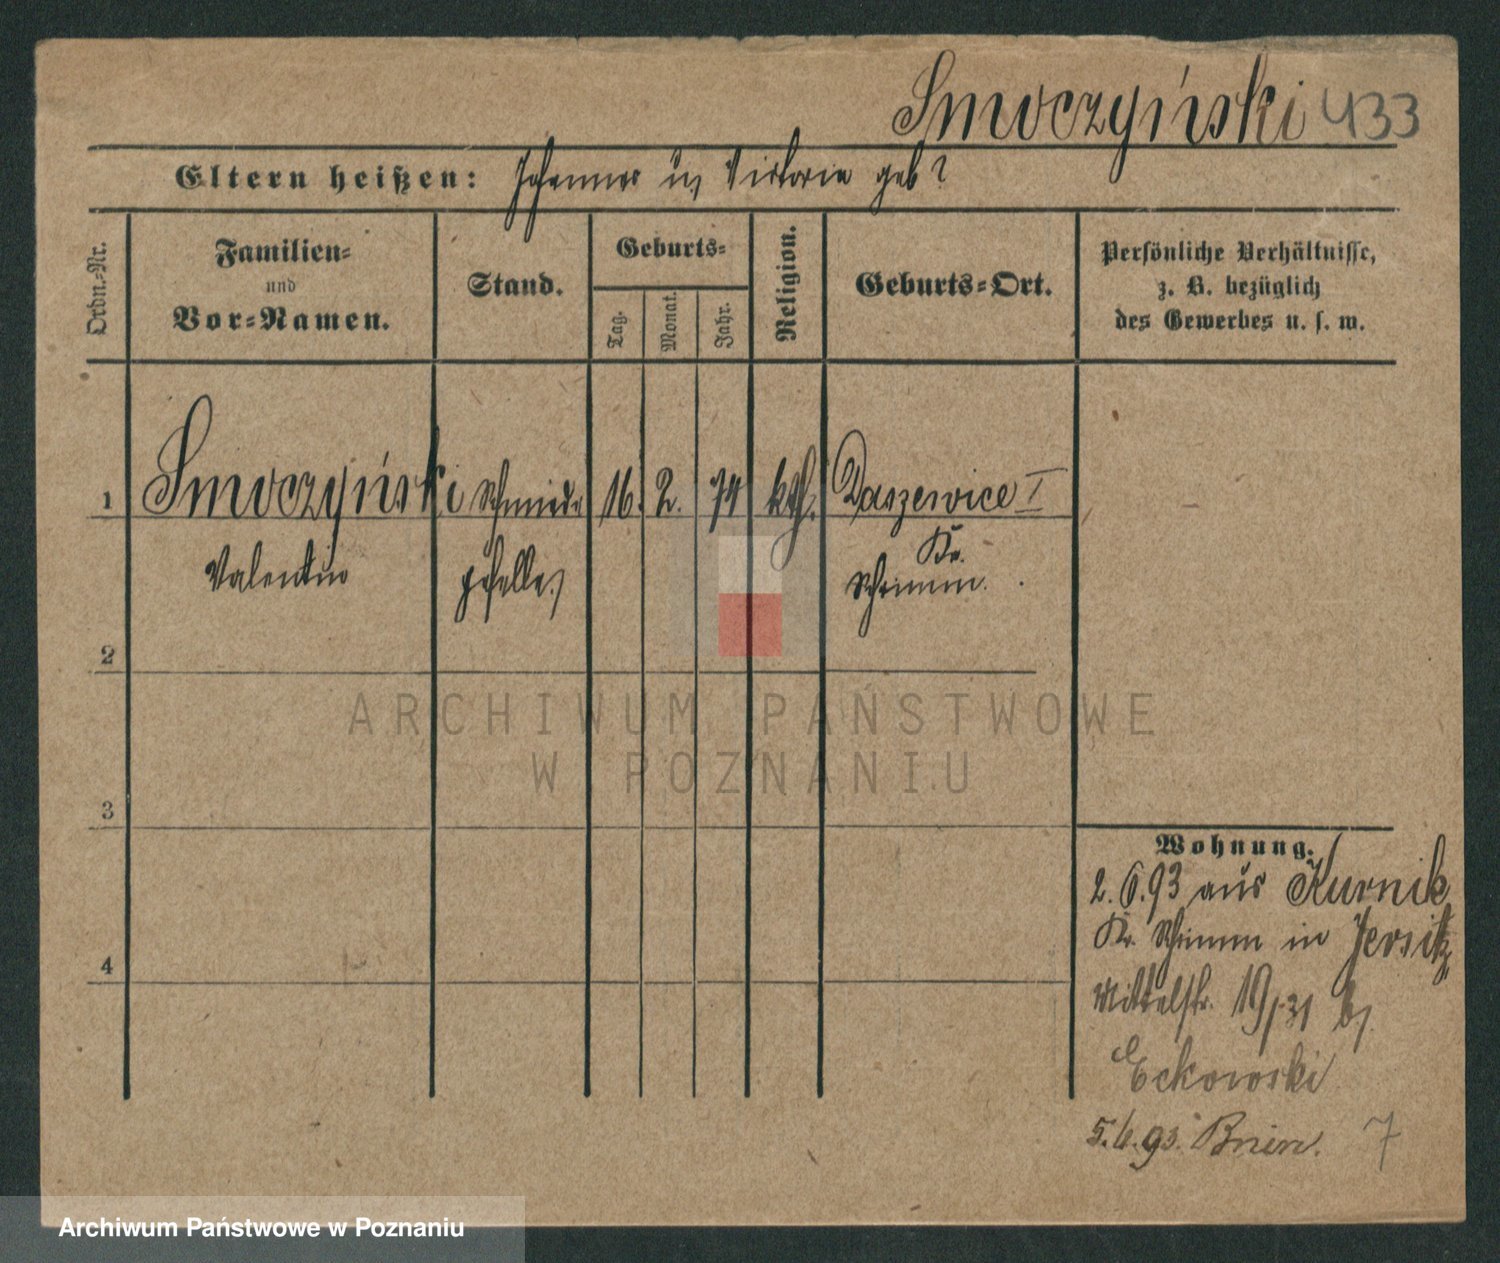 Smoczyński 433
Eltern heißen: Johannes u. Victoria geb?
Ordn.-Nr.
Familien-
und
Vor-Namen.
Stand.
Geburts-
Tag.
Monat.
Jahr.
Religion.
Geburts-Ort.
Persönliche Verhältnisse,
z. B. bezüglich
des Gewerbes u. s. w.
1 Smoczyński Schmiede 16. 2. 74 kth. Daszewice I
Valentin geselle Kr.
Schrimm.
2
3
4
Wohnung.
2.6.93 aus Kurnik
Kr. Schrimm in Jersitz
Mittelstr. 19/31 b/
Eckowski
5.6.93. Bnin. 7
ARCHIWUM PAŃSTWOWE
W POZNANIU
Archiwum Państwowe w Poznaniu